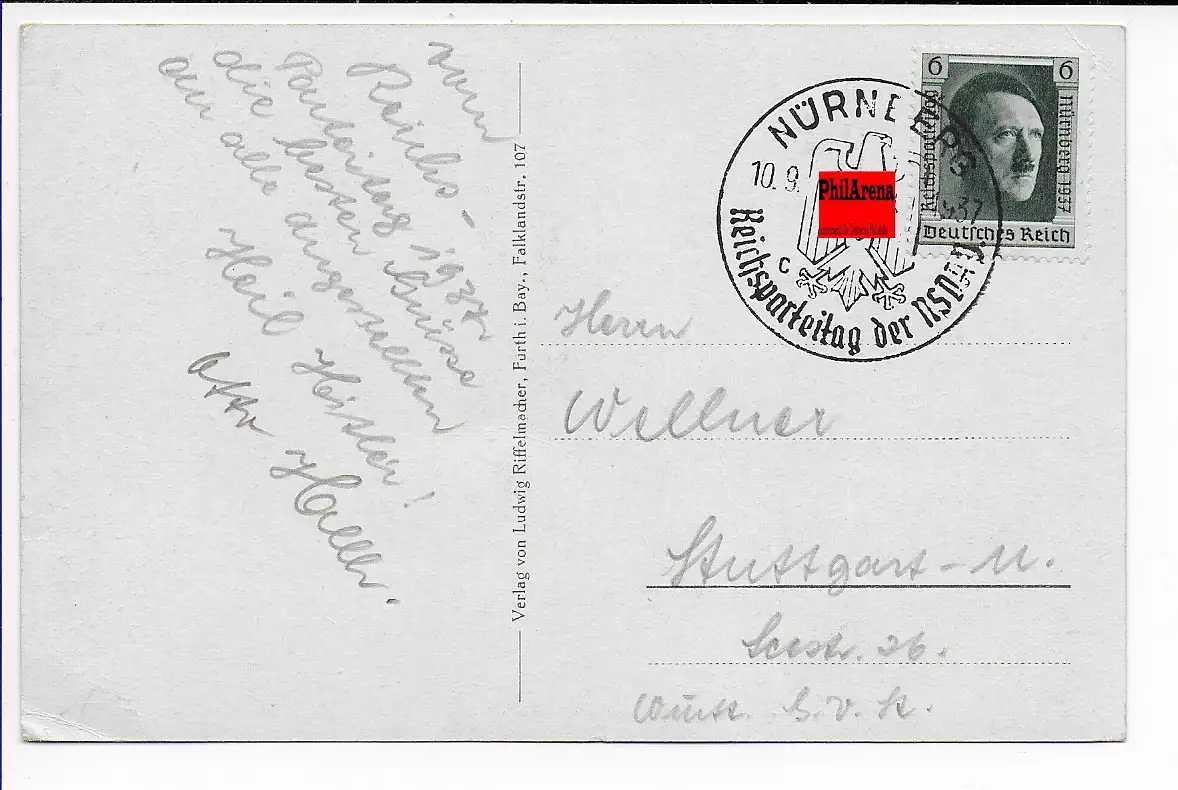 vom
Reichs-
Parteitag 1937
die besten Grüsse
an alle Angestellten
Heil Hitler!
Otto Haller.
Verlag von Ludwig Riffelmacher, Furth i. Bay., Falklandstr. 107
NÜRNBERG
10.9. 1937
c
Reichsparteitag der NSDAP.
PhilArena
6 6
Reichsparteitag
Nürnberg 1937
Deutsches Reich
Herrn
Wellner
Stuttgart-N.
Seestr. 26.
Württ. G.V.St.